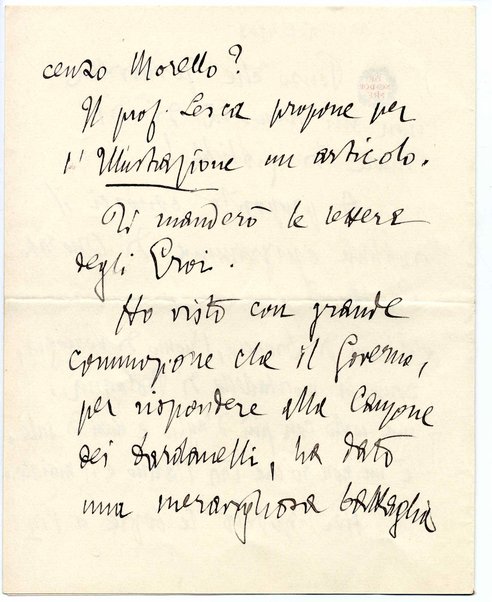 cenzo Morello?
Il prof. Lesca propone per
l'Illustrazione un articolo.
Ti manderò le lettere
degli Eroi.
Ho visto con grande
commozione che il Governo,
per rispondere alla Canzone
dei Dardanelli, ha dato
una meravigliosa battaglia